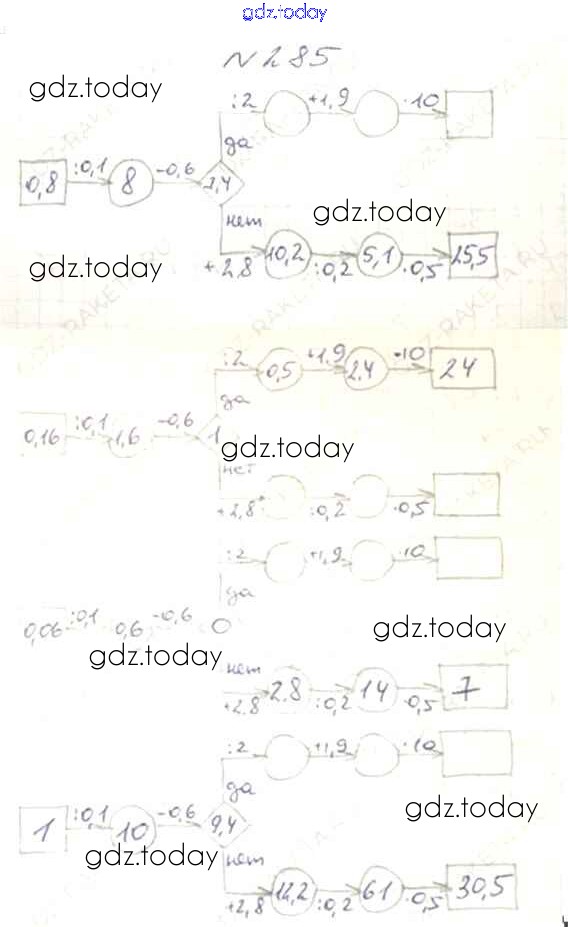 gdz.today
№285
gdz.today
:2 +1,9 ·10
да
0,8 :0,1 8 -0,6 7,4
нет
gdz.today
+2,8 10,2 :0,2 5,1 ·0,5 25,5
gdz.today
:2 0,5 +1,9 2,4 ·10 24
да
0,16 :0,1 1,6 -0,6 1
gdz.today
нет
+2,8 :0,2 ·0,5
:2 +1,9 ·10
да
0,06 :0,1 0,6 -0,6 0
gdz.today
gdz.today
нет
+2,8 2.8 :0,2 14 ·0,5 7
:2 +1,9 ·10
да
gdz.today
1 :0,1 10 -0,6 9,4
gdz.today
нет
+2,8 12,2 :0,2 61 ·0,5 30,5